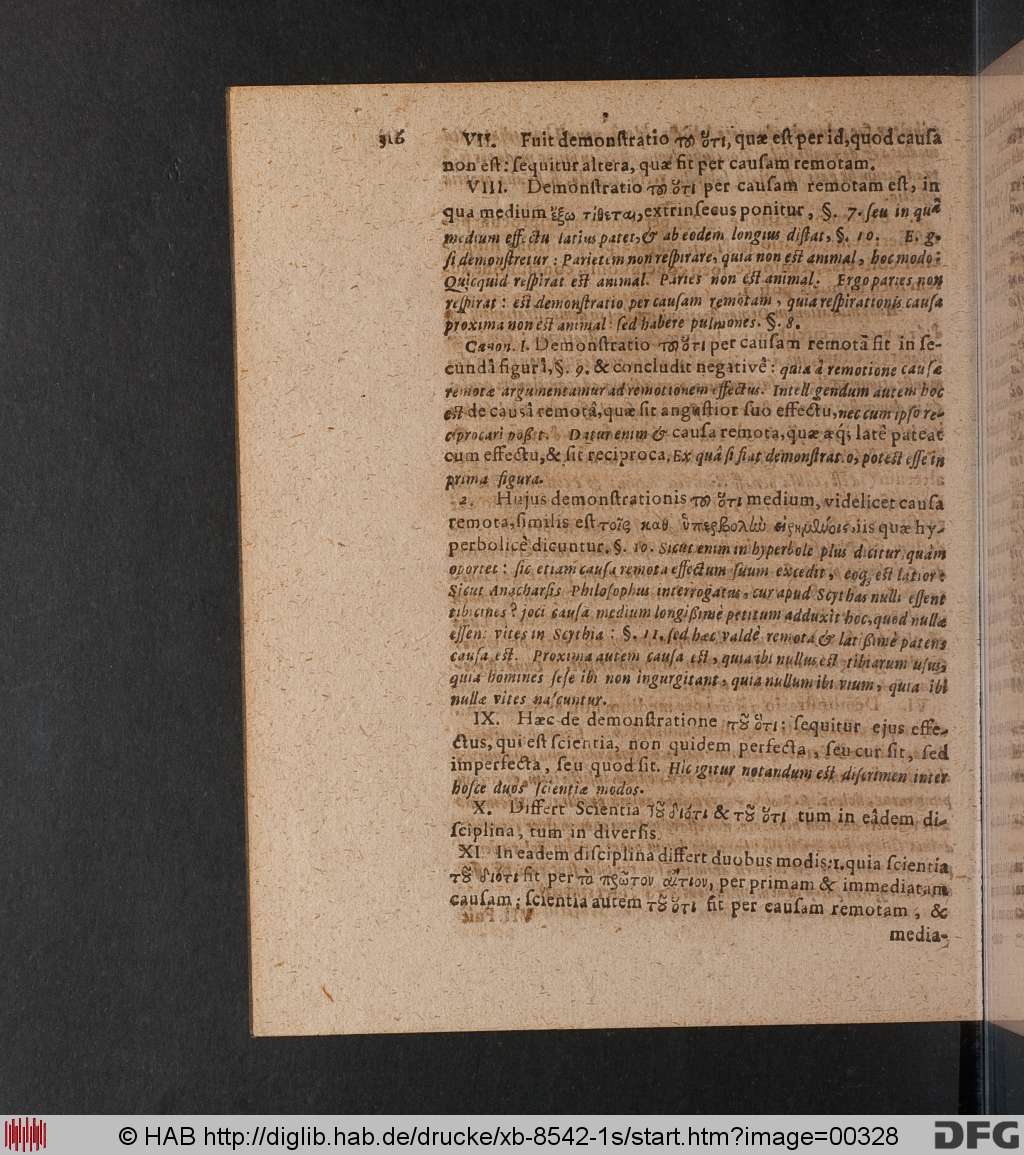 316
VII. Fuit demonſtratio τȣ̃ ὅτι, quæ eſt per id, quod cauſa
non eſt: ſequitur altera, quæ fit per cauſam remotam.
VIII. Demonſtratio τȣ̃ ὅτι per cauſam remotam eſt, in
qua medium ἔξω τίθεται, extrinſecus ponitur, §. 7. ſeu in quâ
medium effectu latius patet, & ab eodem longius diſtat, §. 10. E. g.
ſi demonſtretur: Parietem non reſpirare, quia non eſt animal, hoc modo:
Quicquid reſpirat eſt animal. Paries non eſt animal. Ergo paries non
reſpirat: eſt demonſtratio per cauſam remotam, quia reſpirationis cauſa
proxima non eſt animal ſed habere pulmones. §. 8.
Canon. 1. Demonſtratio τȣ̃ ὅτι per cauſam remotã fit in ſe-
cundâ figurâ, §. 9. & concludit negativê: quia â remotione cauſæ
remotæ argumentamur ad remotionem effectus. Intelligendum autem hoc
eſt de causâ remotâ, quæ ſit anguſtior ſuo effectu, nec cum ipſo re-
ciprocari poßit. Datur enim & cauſa remota, quæ æq; latê pateat
cum effectu, & ſit reciproca. Ex quâ ſi fiat demonſtratio, poteſt eſſe in
prima figura.
2. Hujus demonſtrationis τȣ̃ ὅτι medium, videlicet cauſa
remota, ſimilis eſt τοῖς καθ ὑπερβολὼ εἰρημένοις: iis quæ hy-
perbolicè dicuntur. §. 10. Sicut enim in hyperbole plus dicitur quàm
oportet: ſic etiam cauſa remota effectum ſuum excedit, eoq; eſt latior:
Sicut Anacharſis Philoſophus interrogatus, cur apud Scythas nulli eſſent
tibicines? joci causâ medium longißimè petitum adduxit hoc, quod nullæ
eſſent vites in Scythia: §. 11. ſed hæc valdè remota & latißimè patens
cauſa eſt. Proxima autem cauſa eſt, quia ibi nullus eſt tibiarum uſus,
quia homines ſeſe ibi non ingurgitant, quia nullum ibi vium, quia ibi
nullæ vites naſcuntur.
IX. Hæc de demonſtratione τȣ̃ ὅτι: ſequitur ejus effe-
ctus, qui eſt ſcientia, non quidem perfecta, ſeu cur ſit, ſed
imperfecta, ſeu quod ſit. Hic igitur notandum eſt diſcrimen inter
hoſce duos ſcientiæ modos.
X. Differt Scientia τȣ̃ διότι & τȣ̃ ὅτι tum in eâdem di-
ſciplina, tum in diverſis.
XI. In eadem diſciplina differt duobus modis: 1. quia ſcientia
τȣ̃ διότι fit per τὸ πρῶτον αἴτιον, per primam & immediatam
cauſam; ſcientia autem τȣ̃ ὅτι fit per cauſam remotam, &
media-
© HAB http://diglib.hab.de/drucke/xb-8542-1s/start.htm?image=00328
DFG